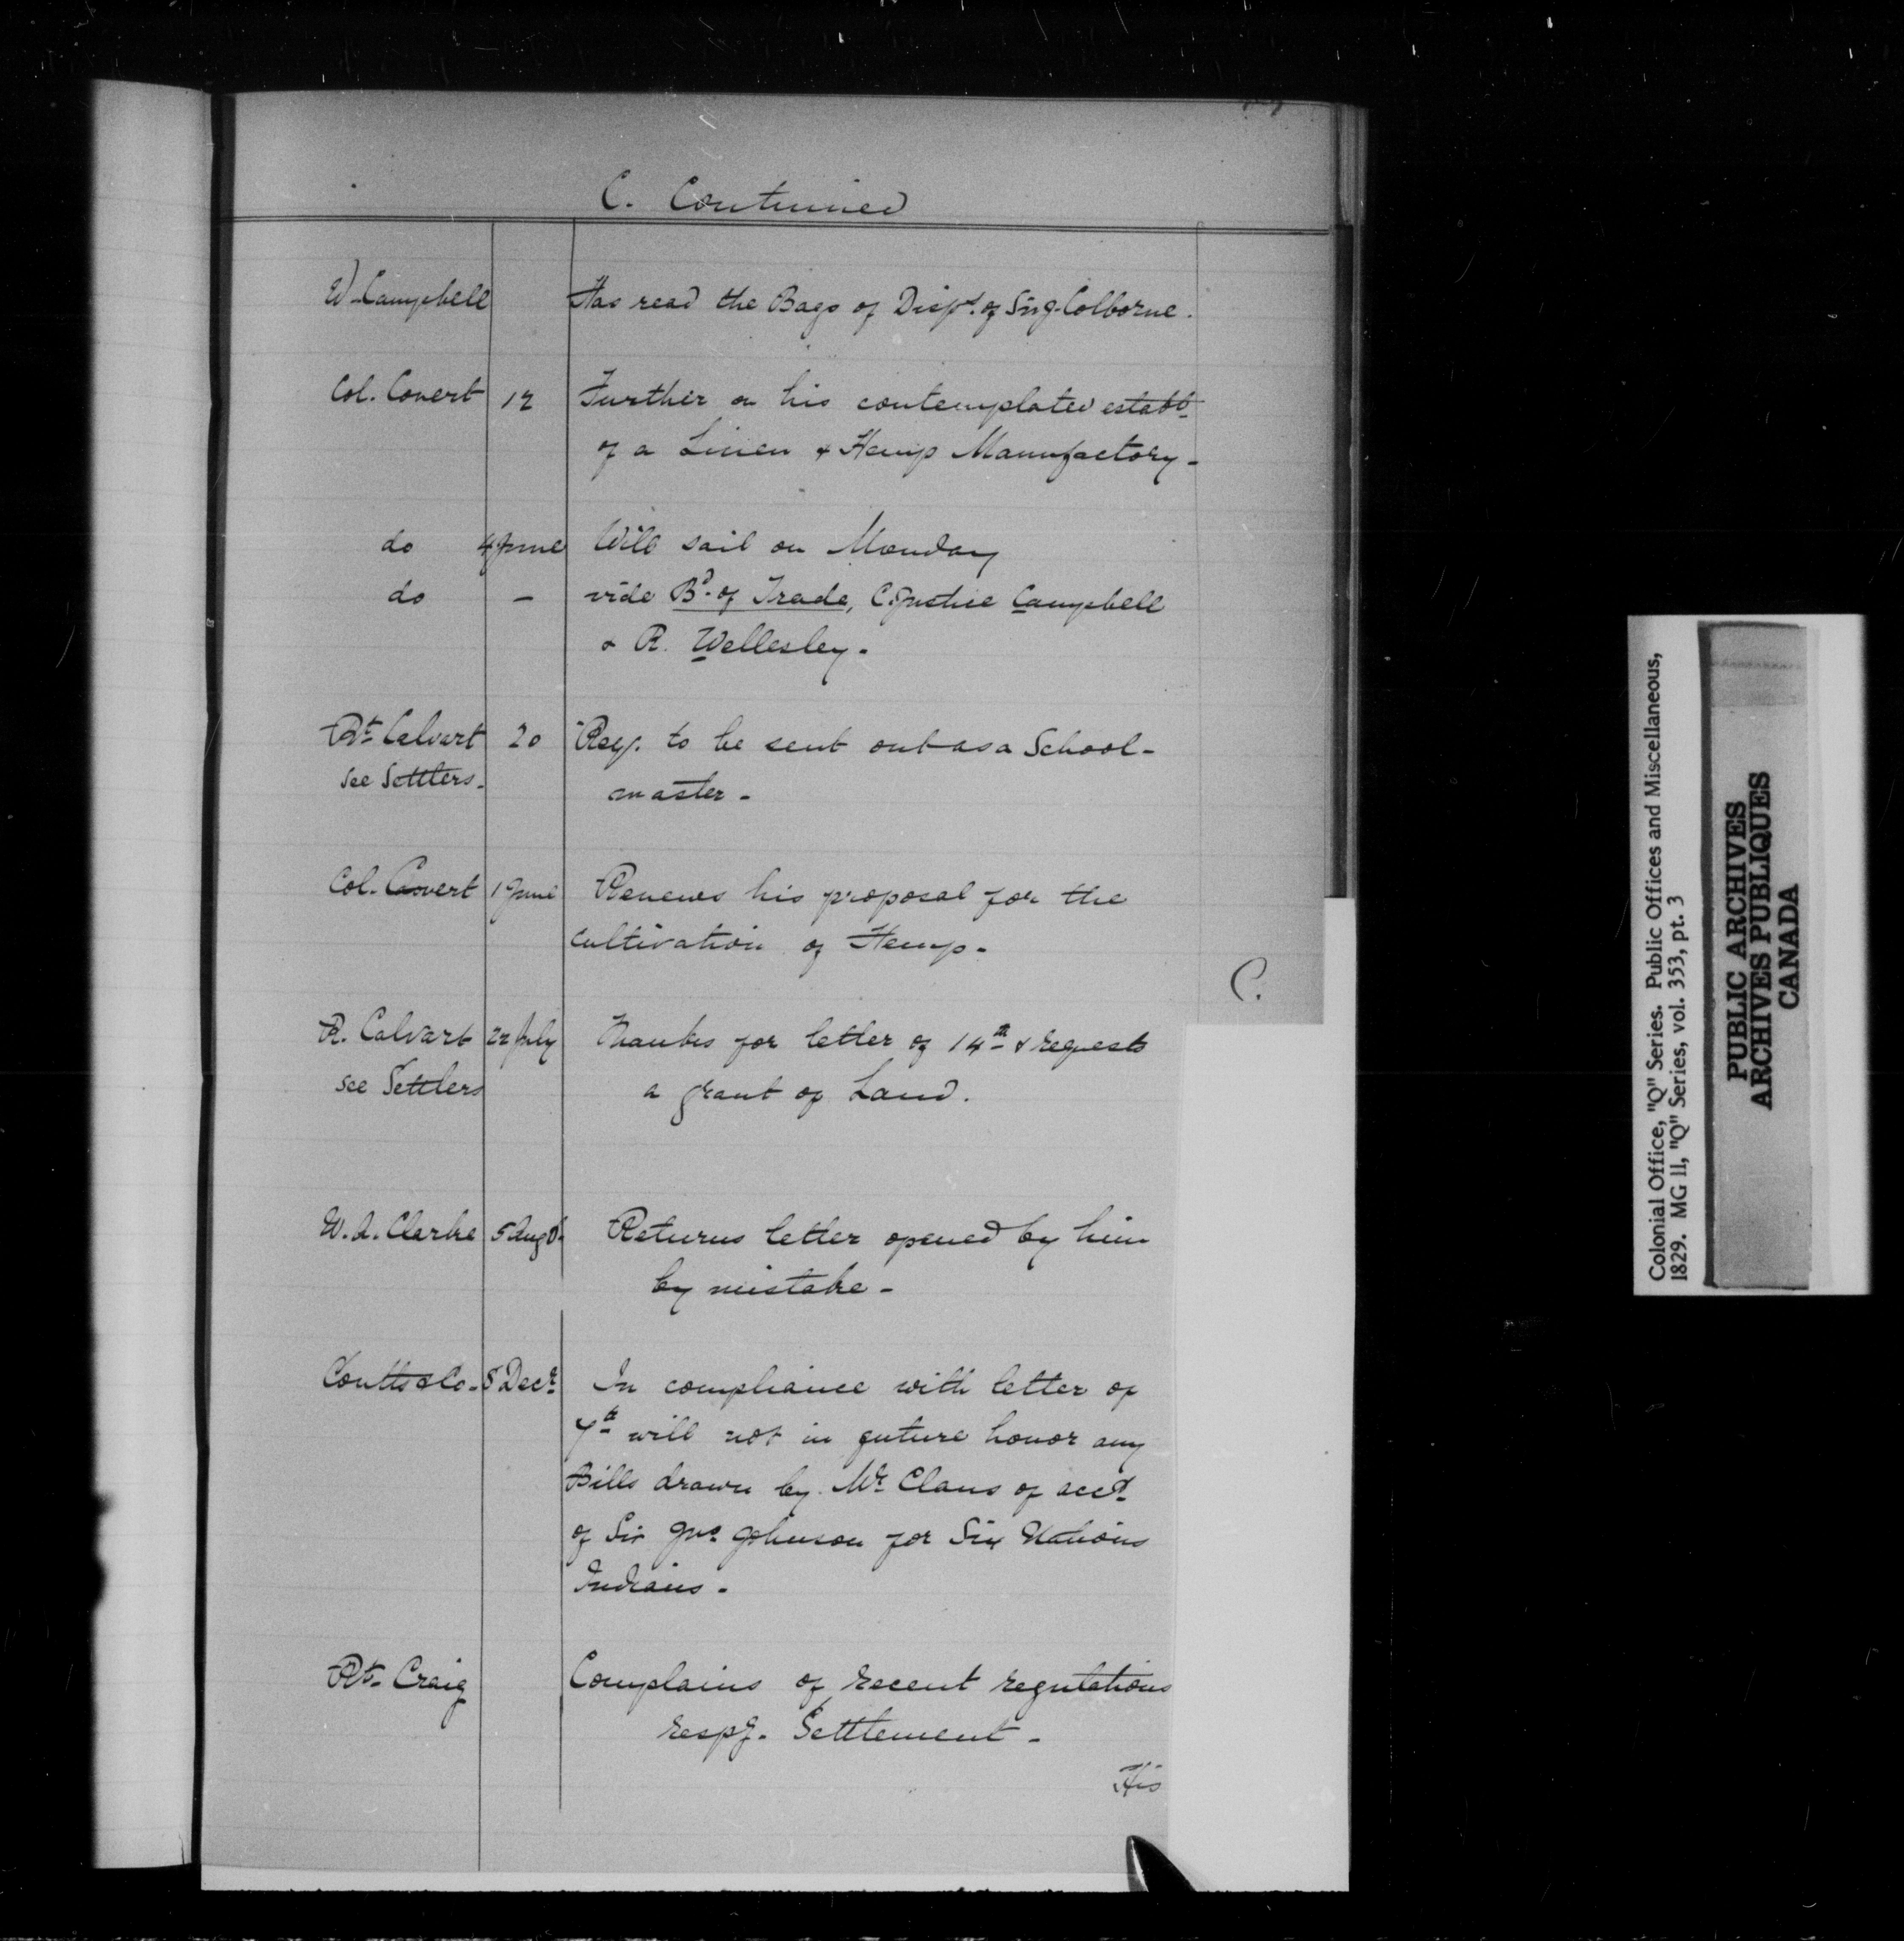 C. Continued
W. Campbell Has read the Bags of Disp.s of Sir J. Colborne.
Col. Covert 12 Further on his contemplated establt.
of a Linen & Hemp Manufactory -
do 4 June Will sail on Monday
do - vide Bd. of Trade, C. Justice Campbell
& R. Wellesley.
Rt. Calvert 20 Req. to be sent out as a School-
see Settlers. master -
Col. Covert 1 June Renews his proposal for the
cultivation of Hemp.
C.
R. Calvart 22 July Thanks for letter of 14th & requests
see Settlers a grant of Land.
W. A. Clarke 5 Augt. Returns letter opened by him
by mistake -
Coutts & Co. 8 Decr. In compliance with letter of
7th will not in future honor any
Bills drawn by Mr. Claus of acct.
of Sir Jno. Johnson for Six Nations
Indians.
Rt. Craig Complains of recent regulations
respg. Settlement -
His
Colonial Office, "Q" Series. Public Offices and Miscellaneous,
1829. MG 11, "Q" Series, vol. 353, pt. 3
PUBLIC ARCHIVES
ARCHIVES PUBLIQUES
CANADA